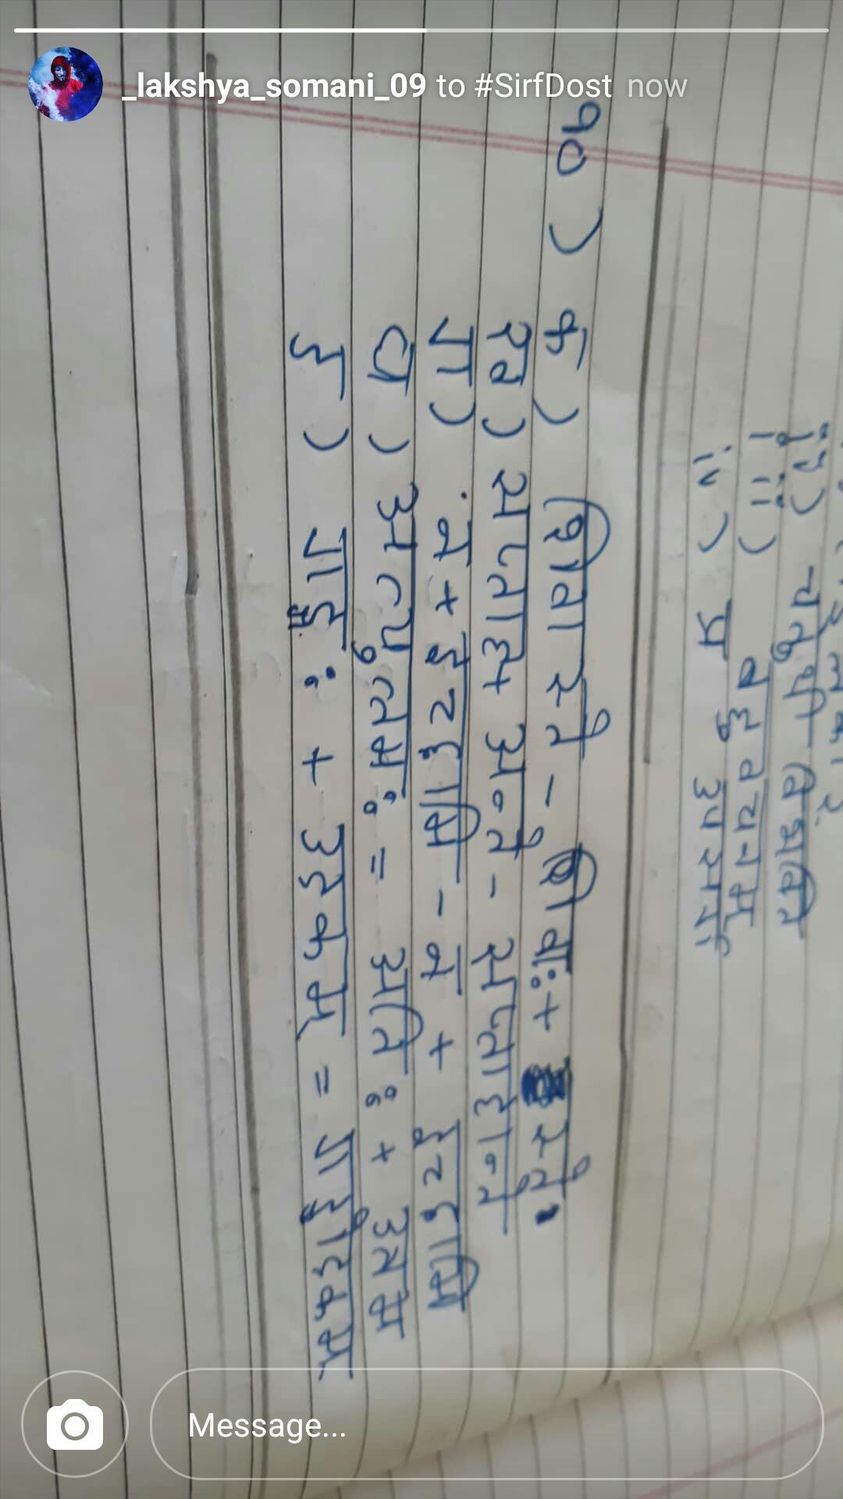 _lakshya_somani_09 to #SirfDost now
ii) चतुर्थी विभक्ति
iii) बहुवचनम्
iv) प्र उपसर्ग
१०) क) शिवास्ते - शिवाः + स्ते
ख) सप्ताह + अन्ते - सप्ताहान्ते
ग) न + इच्छामि - न + इच्छामि
घ) अत्युत्तमः = अतिः + उत्तम
ड) गङ्गः + उदकम् = गङ्गोदकम्
Message...